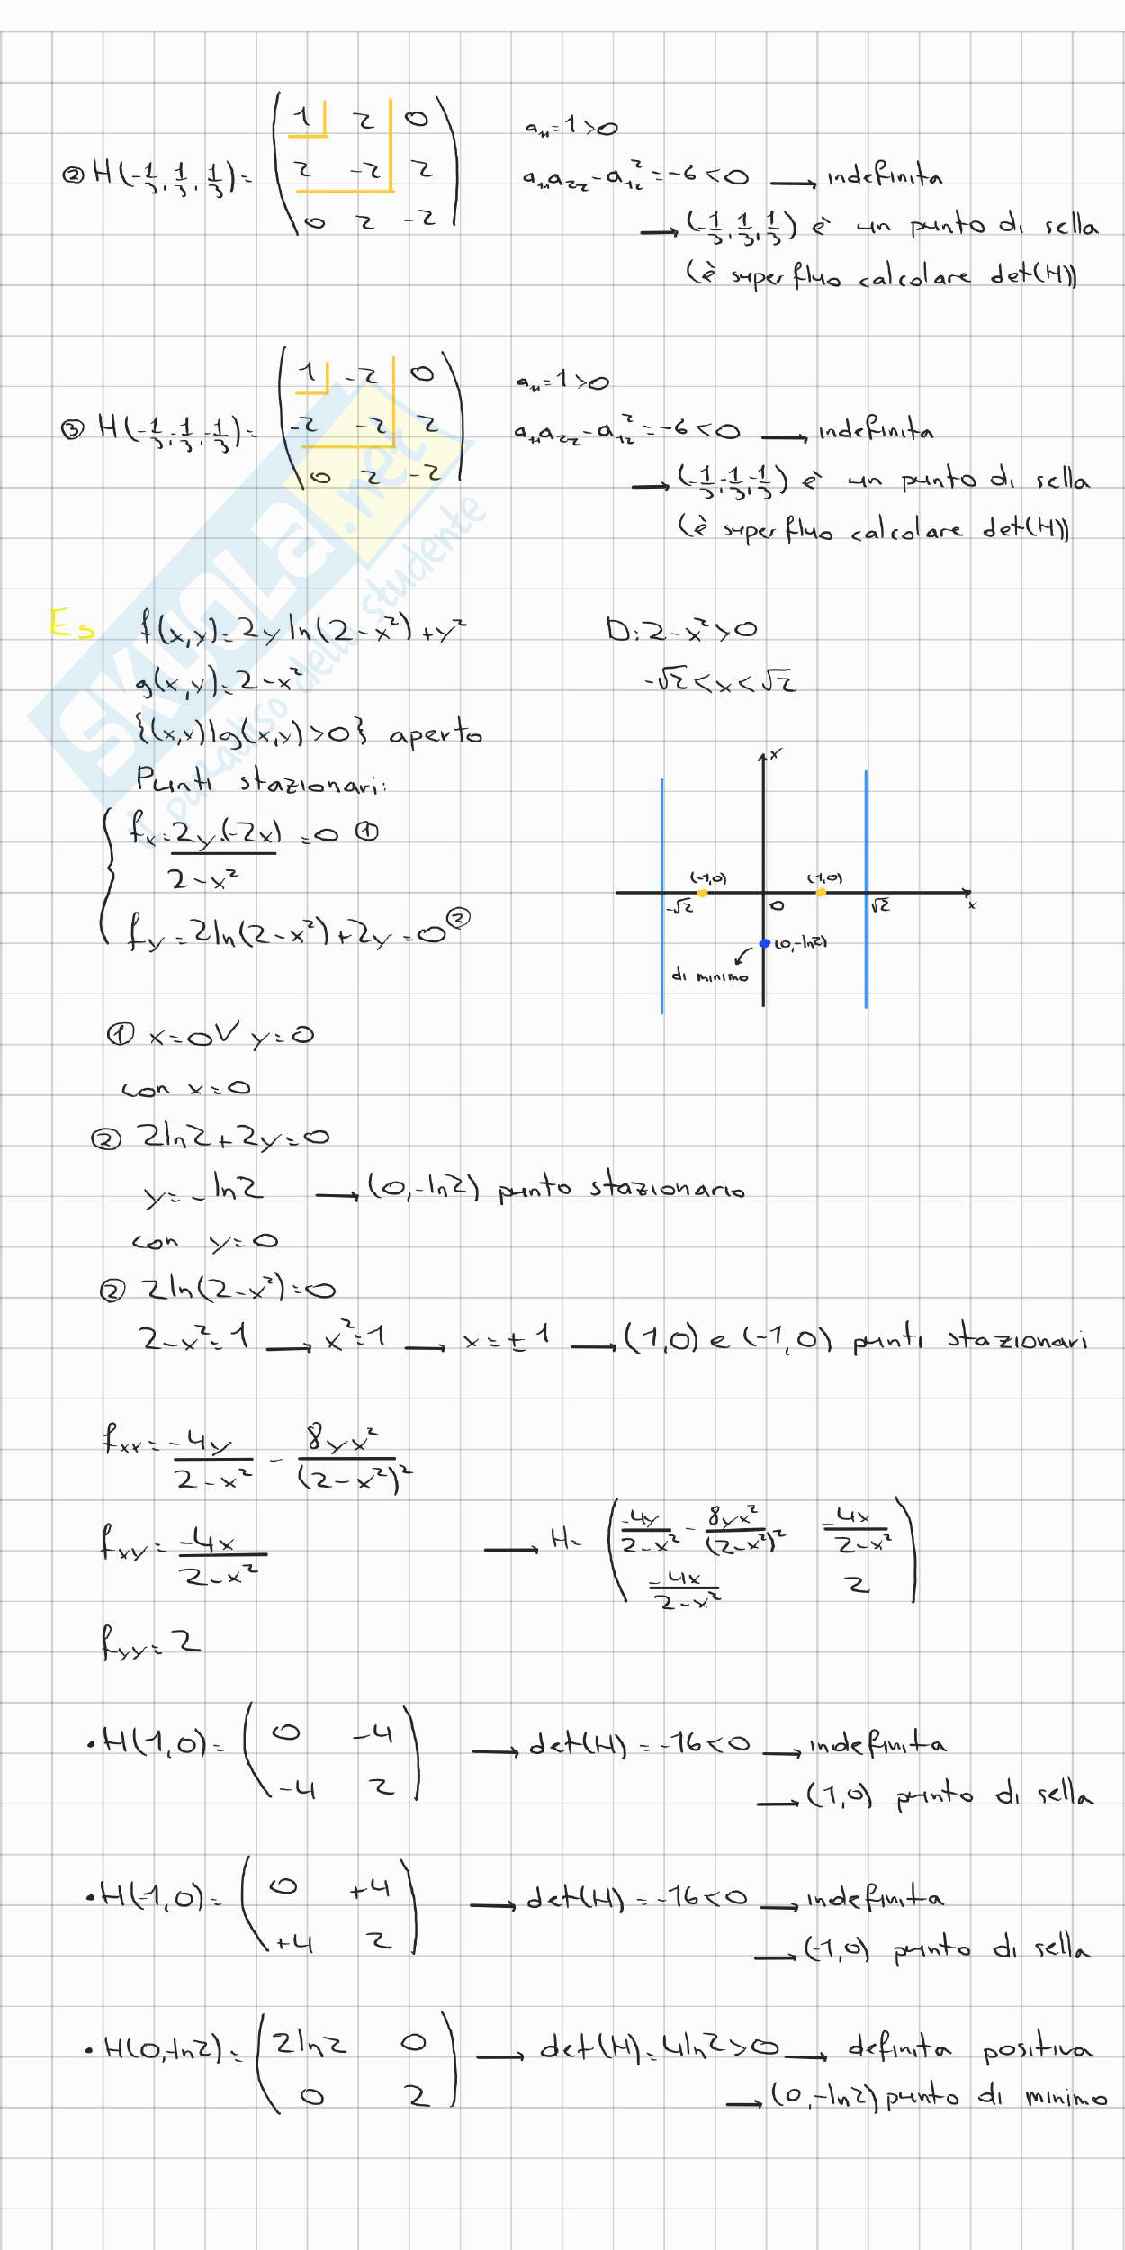 ② H(-1/3, 1/3, 1/3) = (1 2 0
2 -2 2
0 2 -2)
a₁₁=1>0
a₁₁a₂₂-a₁₂²=-6<0 → indefinita
→ (-1/3, 1/3, 1/3) è un punto di sella
(è superfluo calcolare det(H))
③ H(-1/3, -1/3, -1/3) = (1 -2 0
-2 -2 2
0 2 -2)
a₁₁=1>0
a₁₁a₂₂-a₁₂²=-6<0 → indefinita
→ (-1/3, -1/3, -1/3) è un punto di sella
(è superfluo calcolare det(H))
SKUOLA.net
il paradiso dello studente
Es f(x,y)=2y ln(2-x²)+y² D:2-x²>0
g(x,y)=2-x² -√2<x<√2
{(x,y)|g(x,y)>0} aperto
Punti stazionari:
fx=2y(-2x)/(2-x²)=0 ①
fy=2ln(2-x²)+2y=0 ②
Y
(-1,0) (1,0)
-√2 0 √2 x
(0,-ln2)
di minimo
① x=0 V y=0
con x=0
② 2ln2+2y=0
y=-ln2 → (0,-ln2) punto stazionario
con y=0
② 2ln(2-x²)=0
2-x²=1 → x²=1 → x=±1 → (1,0) e (-1,0) punti stazionari
fxx=-4y/(2-x²) - 8yx²/(2-x²)²
fxy=-4x/(2-x²) → H= (-4y/(2-x²) - 8yx²/(2-x²)² -4x/(2-x²)
-4x/(2-x²) 2)
fyy=2
•H(1,0)= (0 -4
-4 2) → det(H)=-16<0 → indefinita
→ (1,0) punto di sella
•H(-1,0)= (0 +4
+4 2) → det(H)=-16<0 → indefinita
→ (-1,0) punto di sella
•H(0,-ln2)= (2ln2 0
0 2) → det(H)=4ln2>0 → definita positiva
→ (0,-ln2) punto di minimo